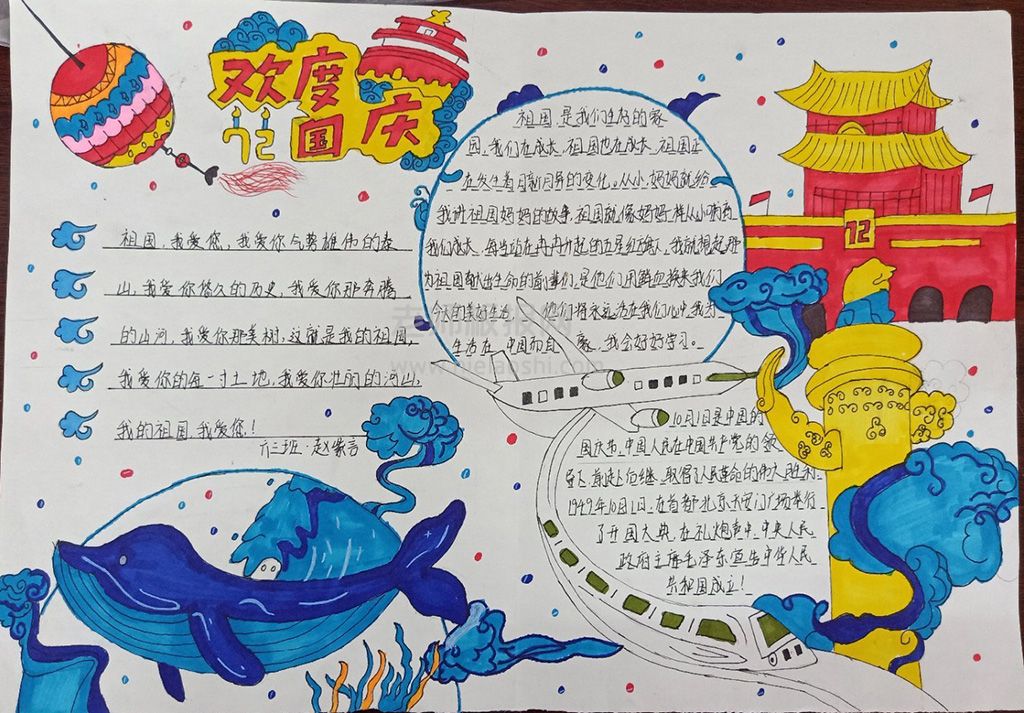 欢度
国庆
72
祖国，我爱您，我爱你气势雄伟的泰
山，我爱你悠久的历史，我爱你那奔腾
的山河，我爱你那美树，这就是我的祖国，
我爱你的每一寸土地，我爱你壮丽的河山，
我的祖国，我爱您！！
六三班·赵
祖国，是我们生好的家
园，我们在成长，祖国也在成长，祖国正
在发生着日新月异的变化。从小，妈妈就给
我讲祖国妈妈的故事，祖国就像妈妈一样从小
我们成长，每当站在冉冉升起的五星红旗下，我就想起那
为祖国献出生命的前辈们，是他们用鲜血换来我们
今天的美好生活，他们将永远活在我们心中，我为
生活在中国而自豪，我会好好学习。
老师板报网
www.bielaoshi.com
72
10月1日是中国的
国庆节，中国人民在中国共产党的领
导下，前赴后继，取得了人民革命的伟大胜利。
1949年10月1日，在首都北京天安门广场举行
了开国大典，在礼炮声中，中央人民
政府主席毛泽东宣告中华人民
共和国成立！